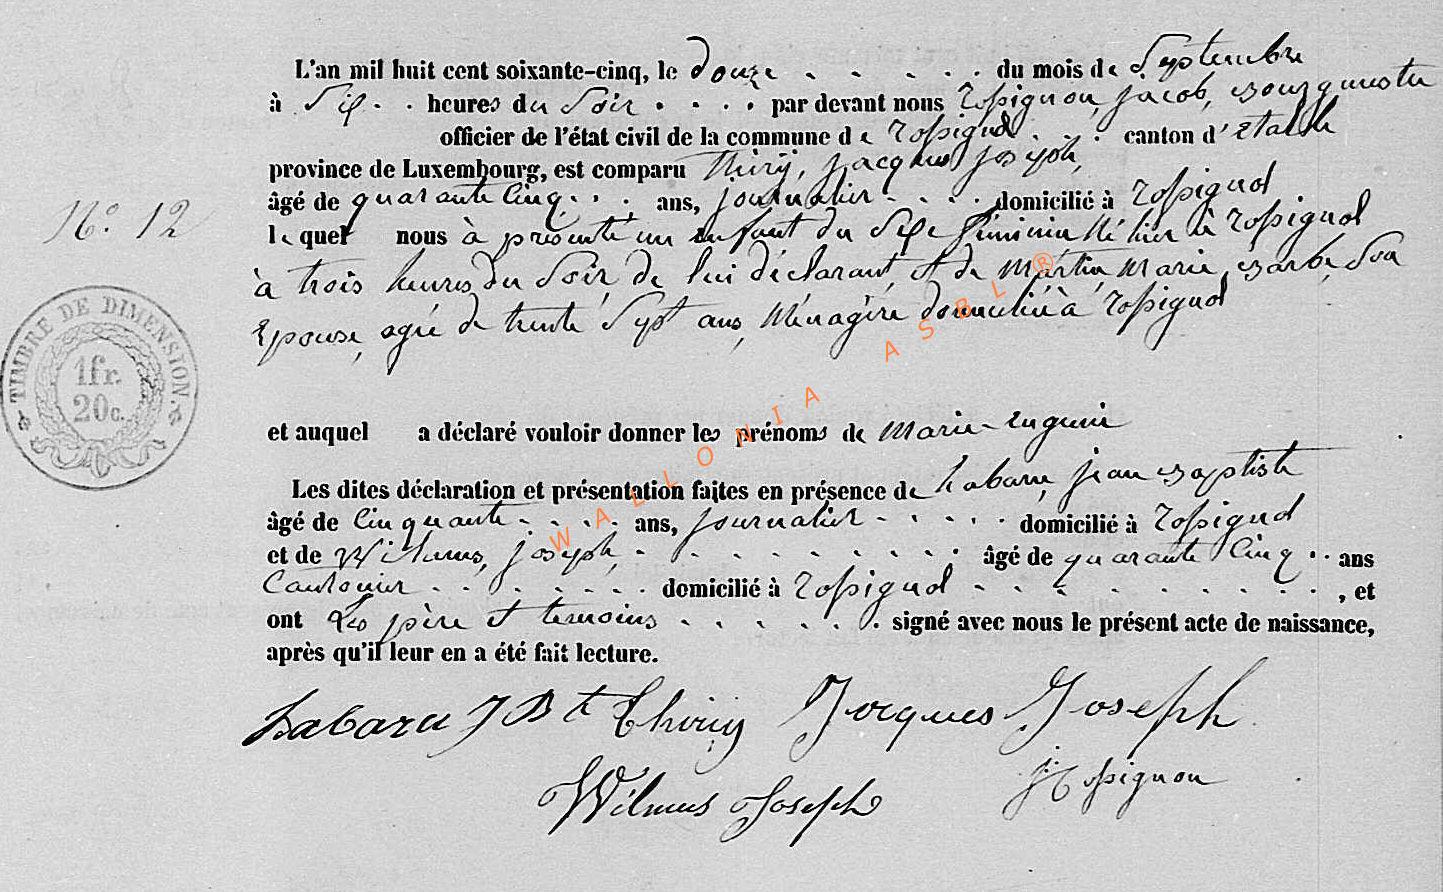 L'an mil huit cent soixante-cinq, le douze . . . . . du mois de Septembre
à Six . . heures du Soir . . . . par devant nous Rossignon, Jacob, Bourgmestre
officier de l'état civil de la commune de Rossignol . . . canton d'Etalle
province de Luxembourg, est comparu Thiry, Jacques Joseph,
âgé de quarante Cinq . . . ans, journalier . . . . domicilié à Rossignol
N° 12
lequel nous à présenté un enfant du Sexe féminin Né hier à Rossignol
à trois heures du Soir, de lui déclarant, et de Martin Marie Barbe, Son
Epouse, agée de trente Sept ans, Ménagère domiciliée à Rossignol
TIMBRE DE DIMENSION.
1fr.
20c.
et auquel a déclaré vouloir donner les prénoms de Marie-Eugenie
Les dites déclaration et présentation faites en présence de Labaru, jean Baptiste
âgé de Cinquante . . . . ans, journalier . . . . . domicilié à Rossignol
et de Wilmus, joseph, . . . . . . . . . . âgé de quarante Cinq . . ans
Cantonier . . . . . . . domicilié à Rossignol . . . . . . . . . . , et
ont Les père et temoins . . . . . . . signé avec nous le présent acte de naissance,
après qu'il leur en a été fait lecture.
Labaru J Bte Thiriy Jacques Joseph
Wilmus Joseph J Rossignon
WALLONIA ASBL ®